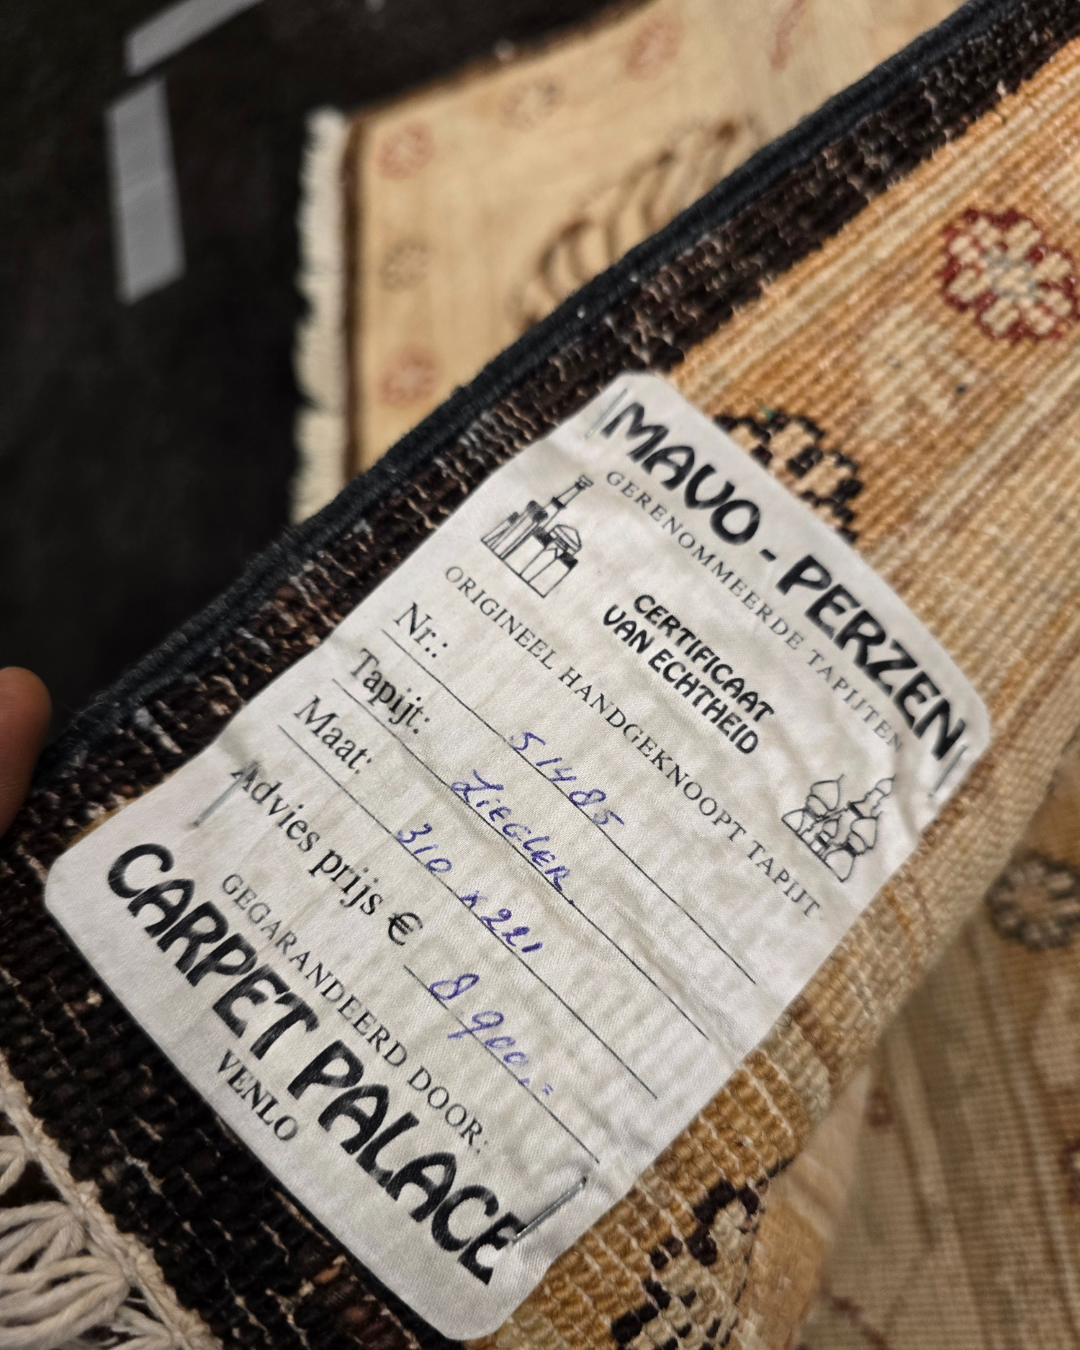 MAVO-PERZEN
GERENOMMEERDE TAPIJTEN
CERTIFICAAT
VAN ECHTHEID
ORIGINEEL HANDGEKNOOPT TAPIJT
Nr.: 51485
Tapijt: ZIEGLER.
Maat: 310 x 221
Advies prijs € 8900,=
GEGARANDEERD DOOR:
CARPET PALACE
VENLO